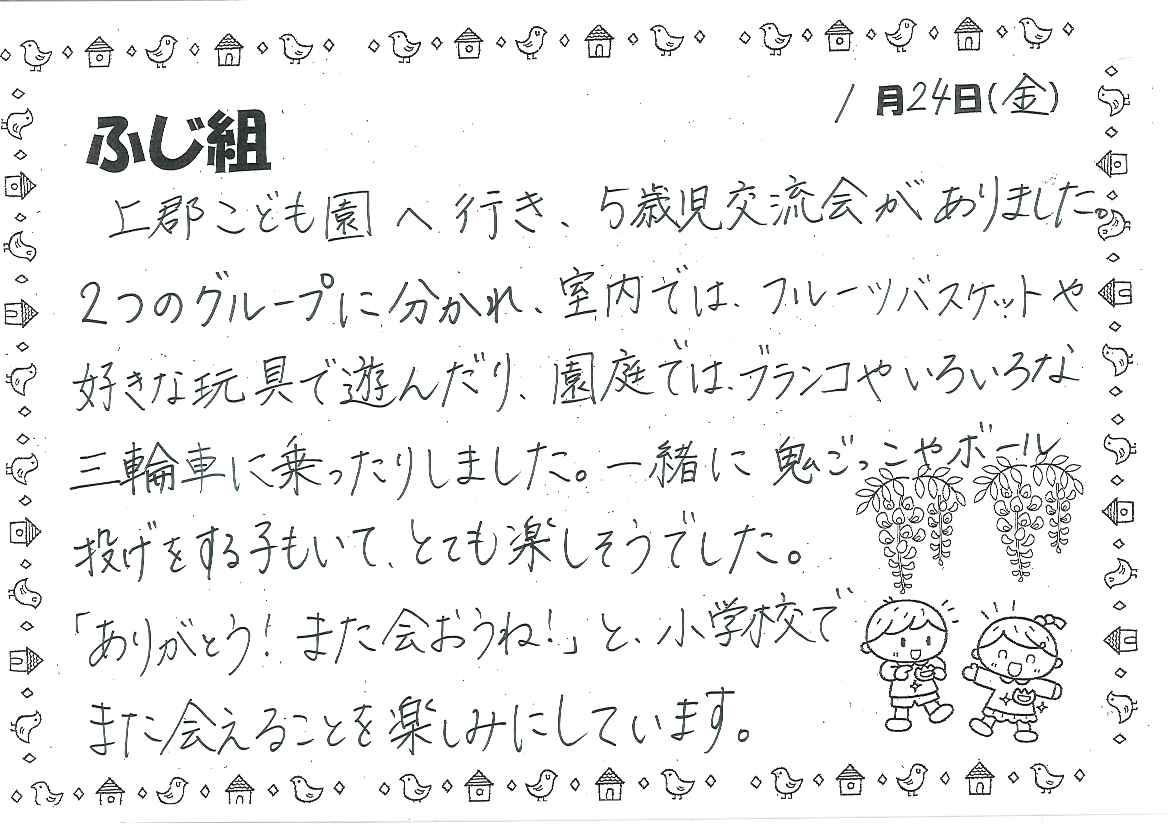 1月24日(金)
ふじ組
上郡こども園へ行き、5歳児交流会がありました。
2つのグループに分かれ、室内では、フルーツバスケットや
好きな玩具で遊んだり、園庭では、ブランコやいろいろな
三輪車に乗ったりしました。一緒に鬼ごっこやボール
投げをする子もいて、とても楽しそうでした。
「ありがとう!また会おうね!」と、小学校で
また会えることを楽しみにしています。